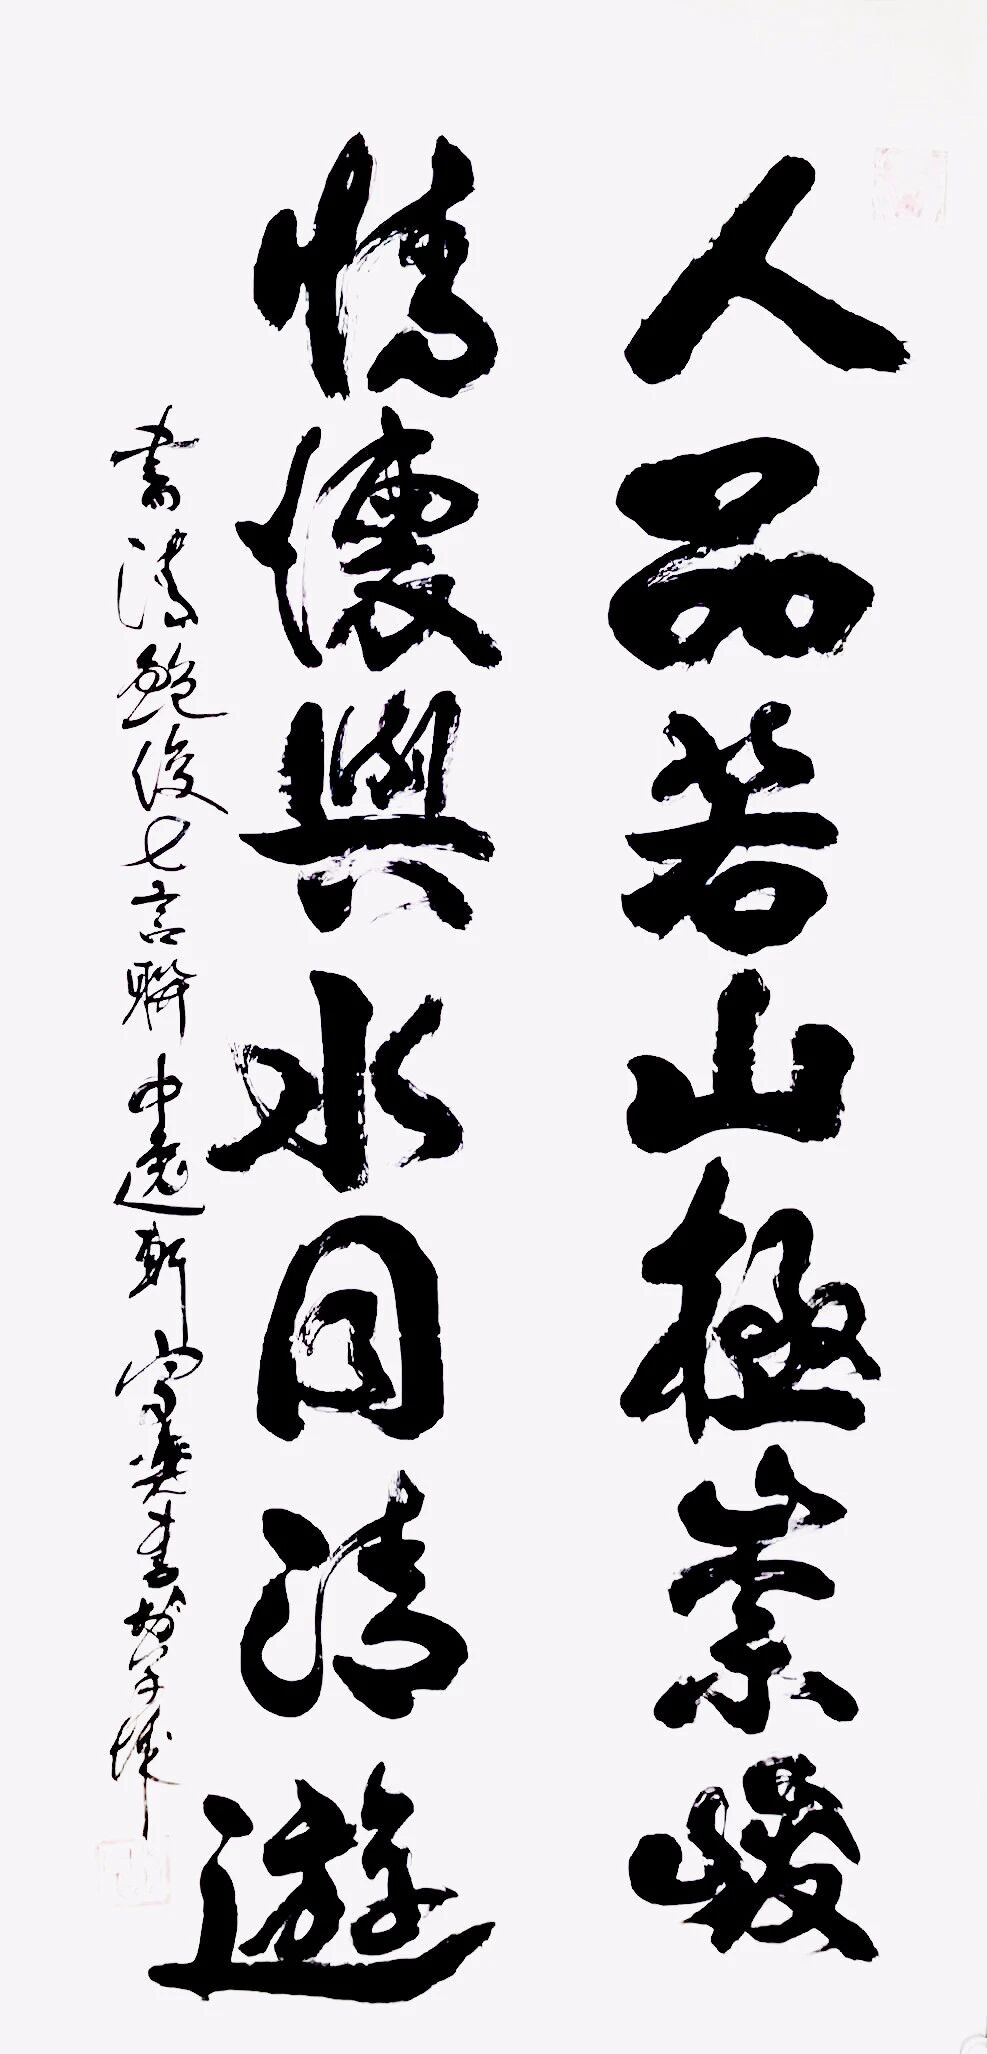 人品若山極崇峻
情懷與水同清遊
書清鮑俊七言聯中逸軒